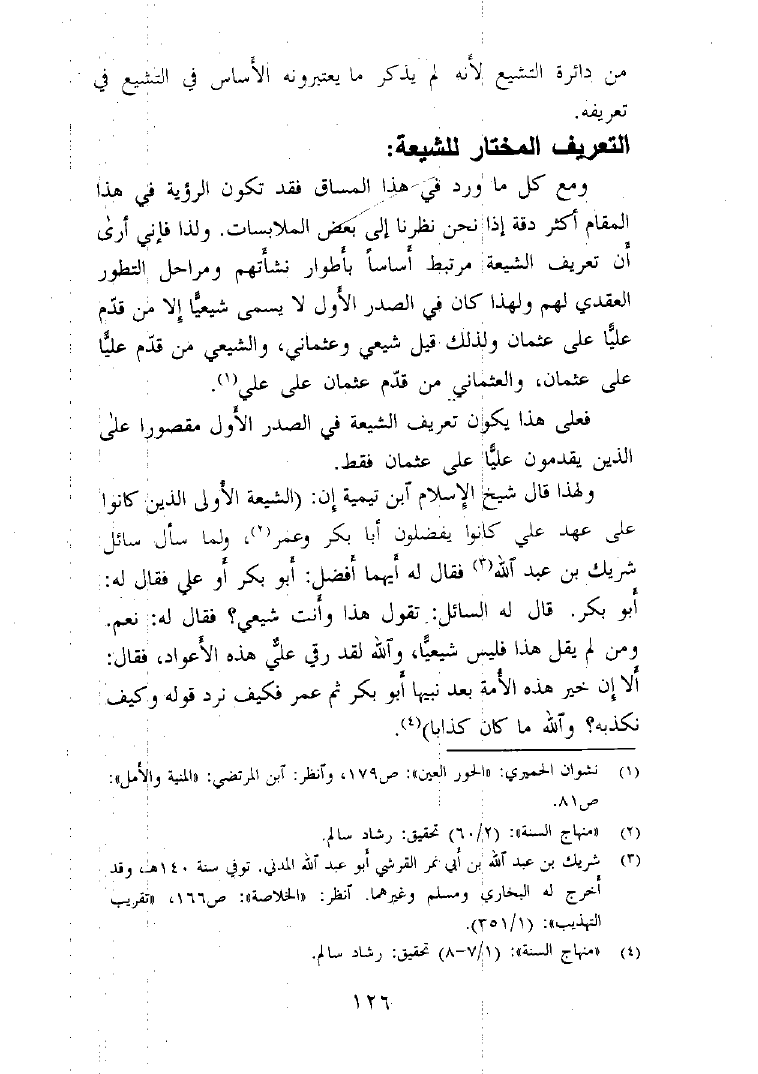 من دائرة التشيع لأنه لم يذكر ما يعتبرونه الأساس في التشيع في
تعريفه.
التعريف المختار للشيعة:
ومع كل ما ورد في هذا المساق فقد تكون الرؤية في هذا
المقام أكثر دقة إذا نحن نظرنا إلى بعض الملابسات. ولذا فإني أرىٰ
أن تعريف الشيعة مرتبط أساساً بأطوار نشأتهم ومراحل التطور
العقدي لهم ولهذا كان في الصدر الأول لا يسمى شيعيًّا إلا من قدّم
عليًّا على عثمان ولذلك قيل شيعي وعثماني، والشيعي من قدّم عليًّا
على عثمان، والعثماني من قدّم عثمان على علي(١).
فعلى هذا يكون تعريف الشيعة في الصدر الأول مقصورا علىٰ
الذين يقدمون عليًّا على عثمان فقط.
ولهذا قال شيخ الإسلام ٱبن تيمية إن: (الشيعة الأولى الذين كانوا
على عهد علي كانوا يفضلون أبا بكر وعمر(٢)، ولما سأل سائل
شريك بن عبد ٱلله(٣) فقال له أيهما أفضل: أبو بكر أو علي فقال له:
أبو بكر. قال له السائل: تقول هذا وأنت شيعي؟ فقال له: نعم.
ومن لم يقل هذا فليس شيعيًّا، وٱلله لقد رقي عليٌّ هذه الأعواد، فقال:
ألا إن خير هذه الأمة بعد نبيها أبو بكر ثم عمر فكيف نرد قوله وكيف
نكذبه؟ وٱلله ما كان كذابا)(٤).
(١) نشوان الحميري: «الحور العين»: ص١٧٩، وٱنظر: ٱبن المرتضي: «المنية والأمل»:
ص٨١.
(٢) «منهاج السنة»: (٦٠/٢) تحقيق: رشاد سالم.
(٣) شريك بن عبد ٱلله بن أبي نمر القرشي أبو عبد ٱلله المدني. توفي سنة ١٤٠هـ، وقد
أخرج له البخاري ومسلم وغيرهما. ٱنظر: «الخلاصة»: ص١٦٦، «تقريب
التهذيب»: (٣٥١/١).
(٤) «منهاج السنة»: (٧/١-٨) تحقيق: رشاد سالم.
١٢٦